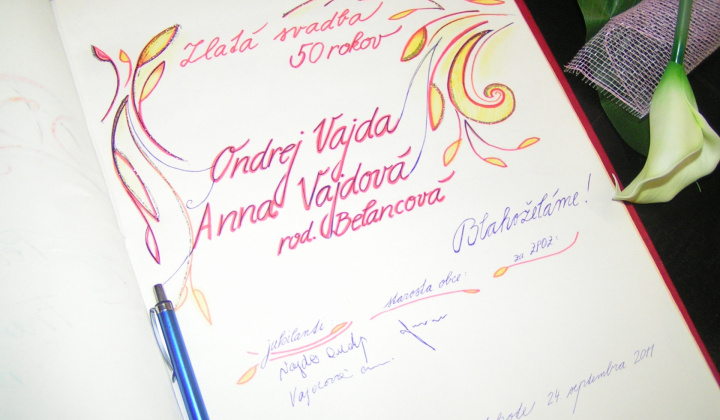 Zlatá svadba
50 rokov
Ondrej Vajda
Anna Vajdová
rod. Belancová
Blahoželáme!
jubilanti starosta obce za ZPOZ
Vajda Ondrej
Vajdová
24. septembra 2011